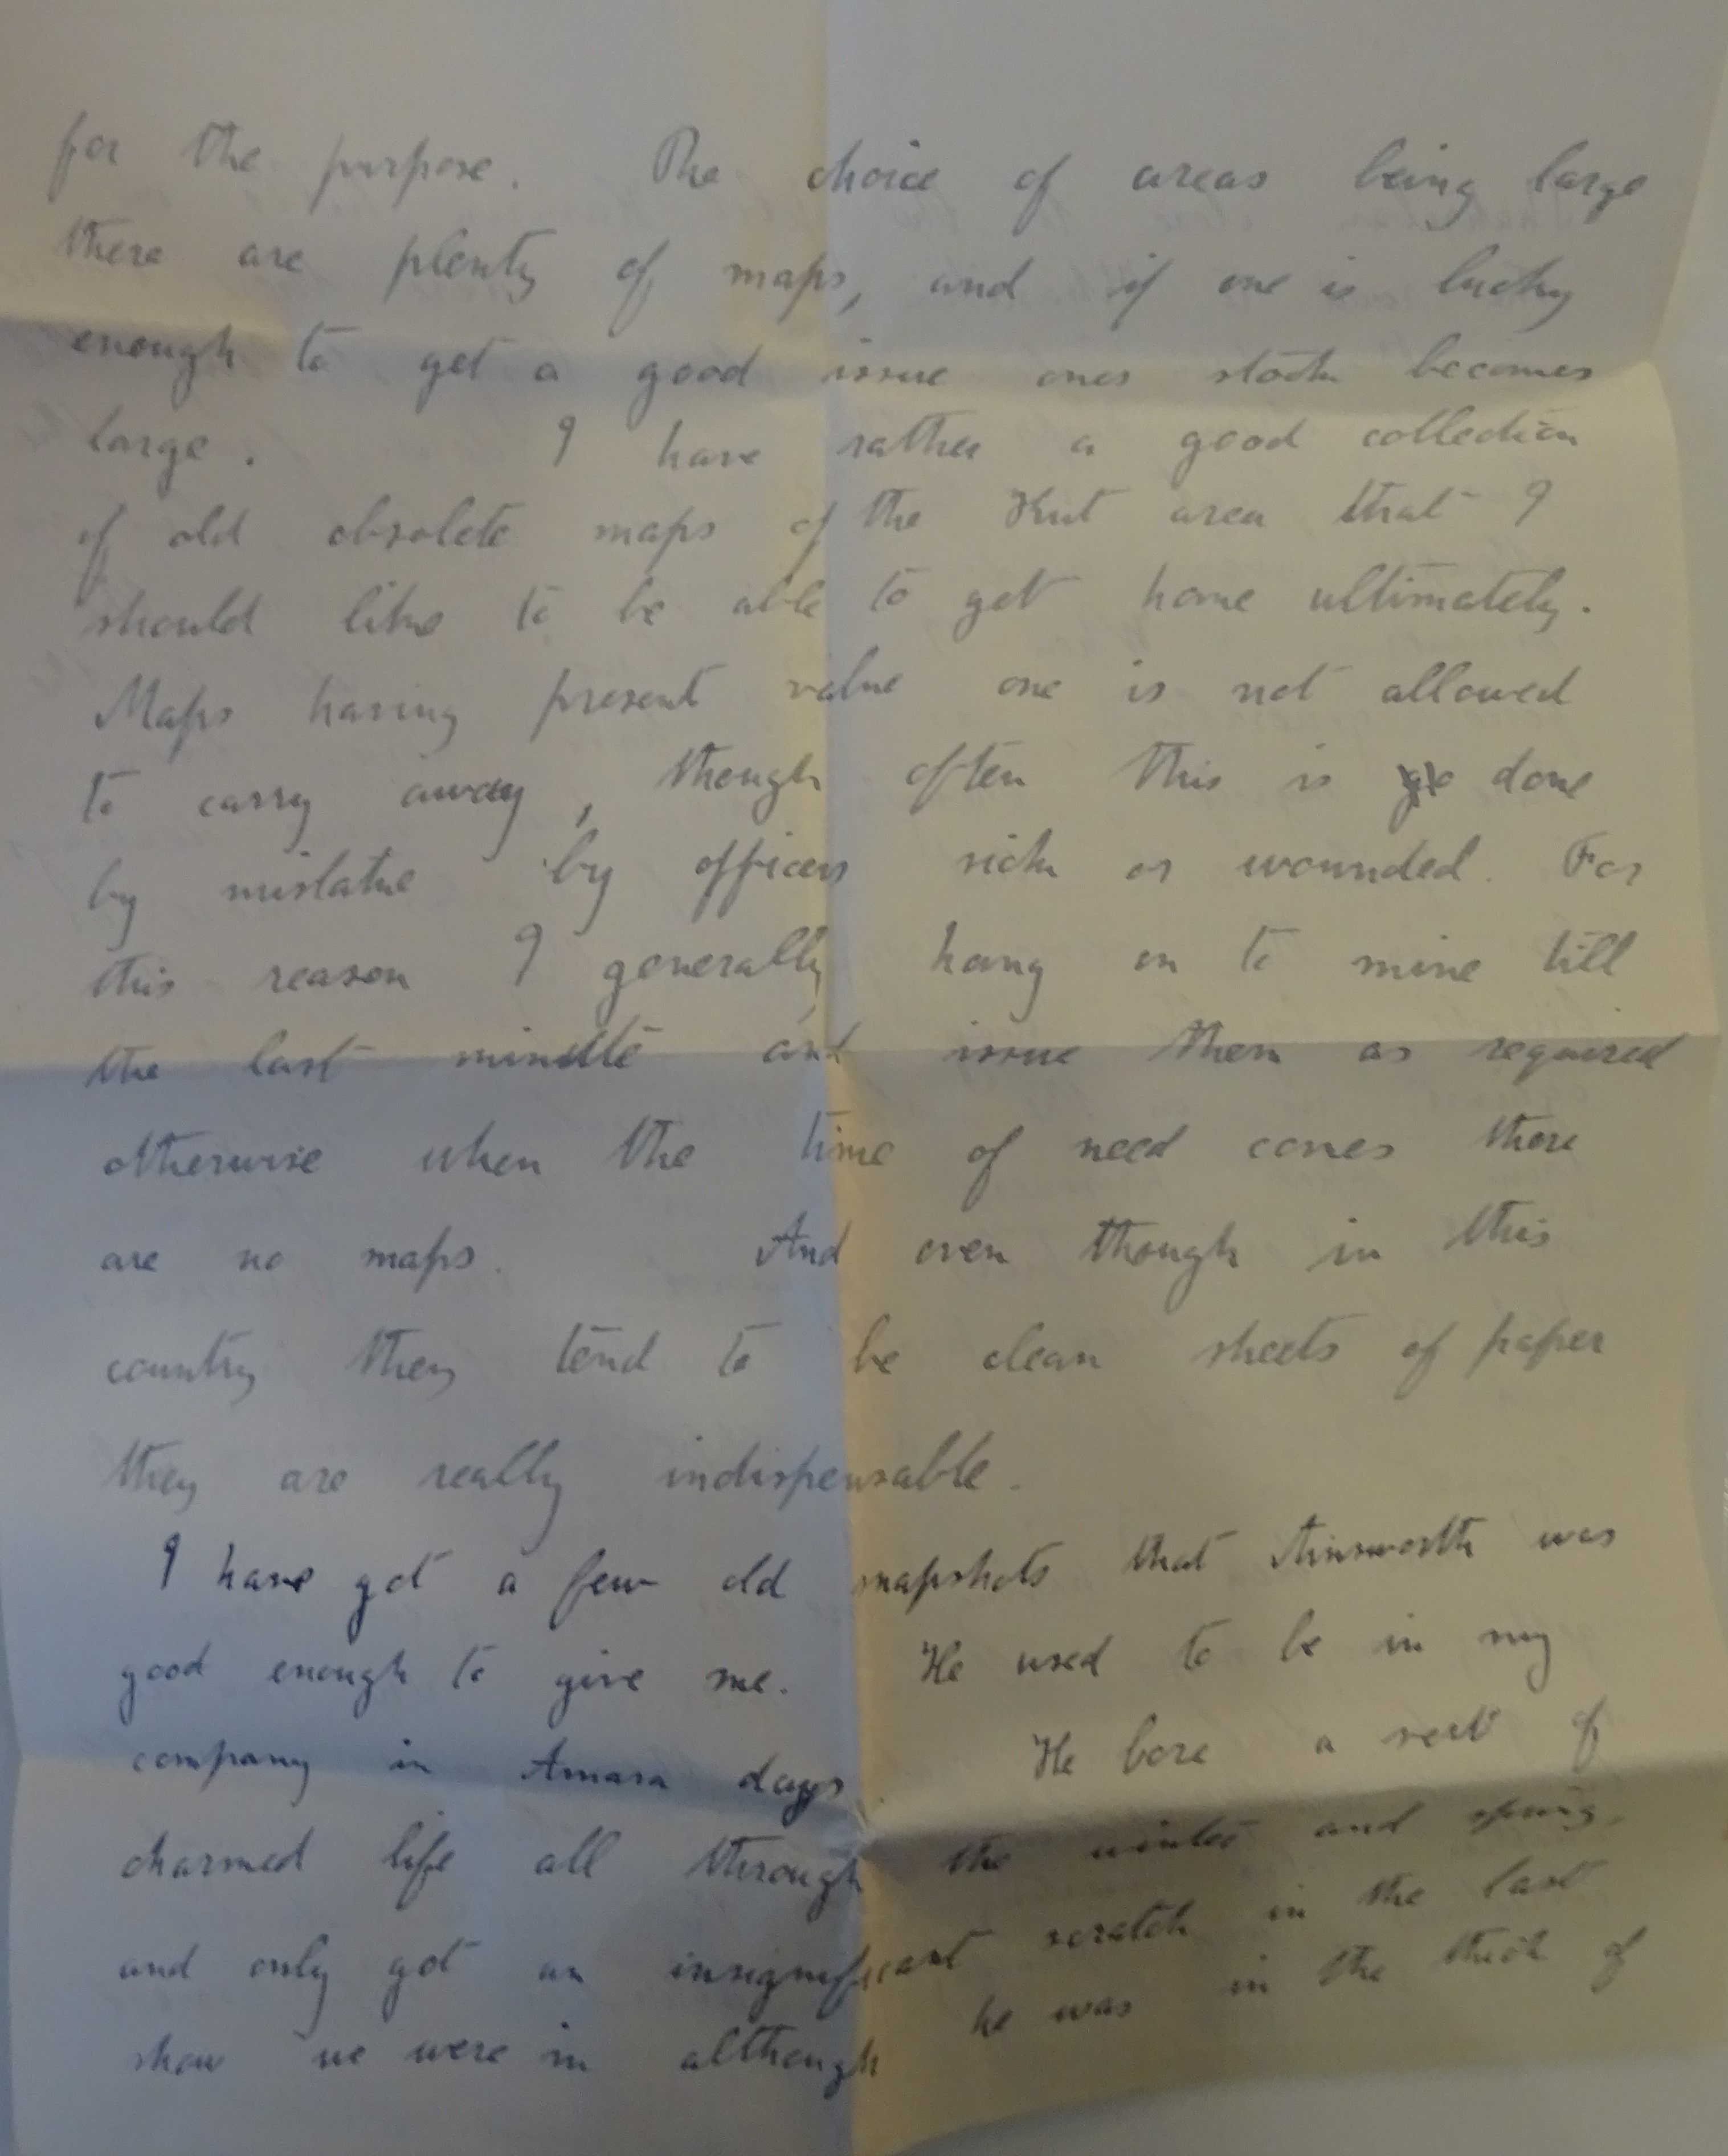 for the purpose. The choice of areas being large
there are plenty of maps, and if one is lucky
enough to get a good issue ones stock becomes
large. I have rather a good collection
of old obsolete maps of the Kut area that I
should like to be able to get home ultimately.
Maps having present value one is not allowed
to carry away, though often this is done
by mistake by officers sick or wounded. For
this reason I generally hang on to mine till
the last minute and issue them as required
otherwise when the time of need comes there
are no maps. And even though in this
country they tend to be clean sheets of paper
they are really indispensable.
I have got a few old snapshots that Ainsworth was
good enough to give me. He used to be in my
company in Amara days He bore a sort of
charmed life all through the winter and spring.
and only got an insignificant scratch in the last
show we were in although he was in the thick of